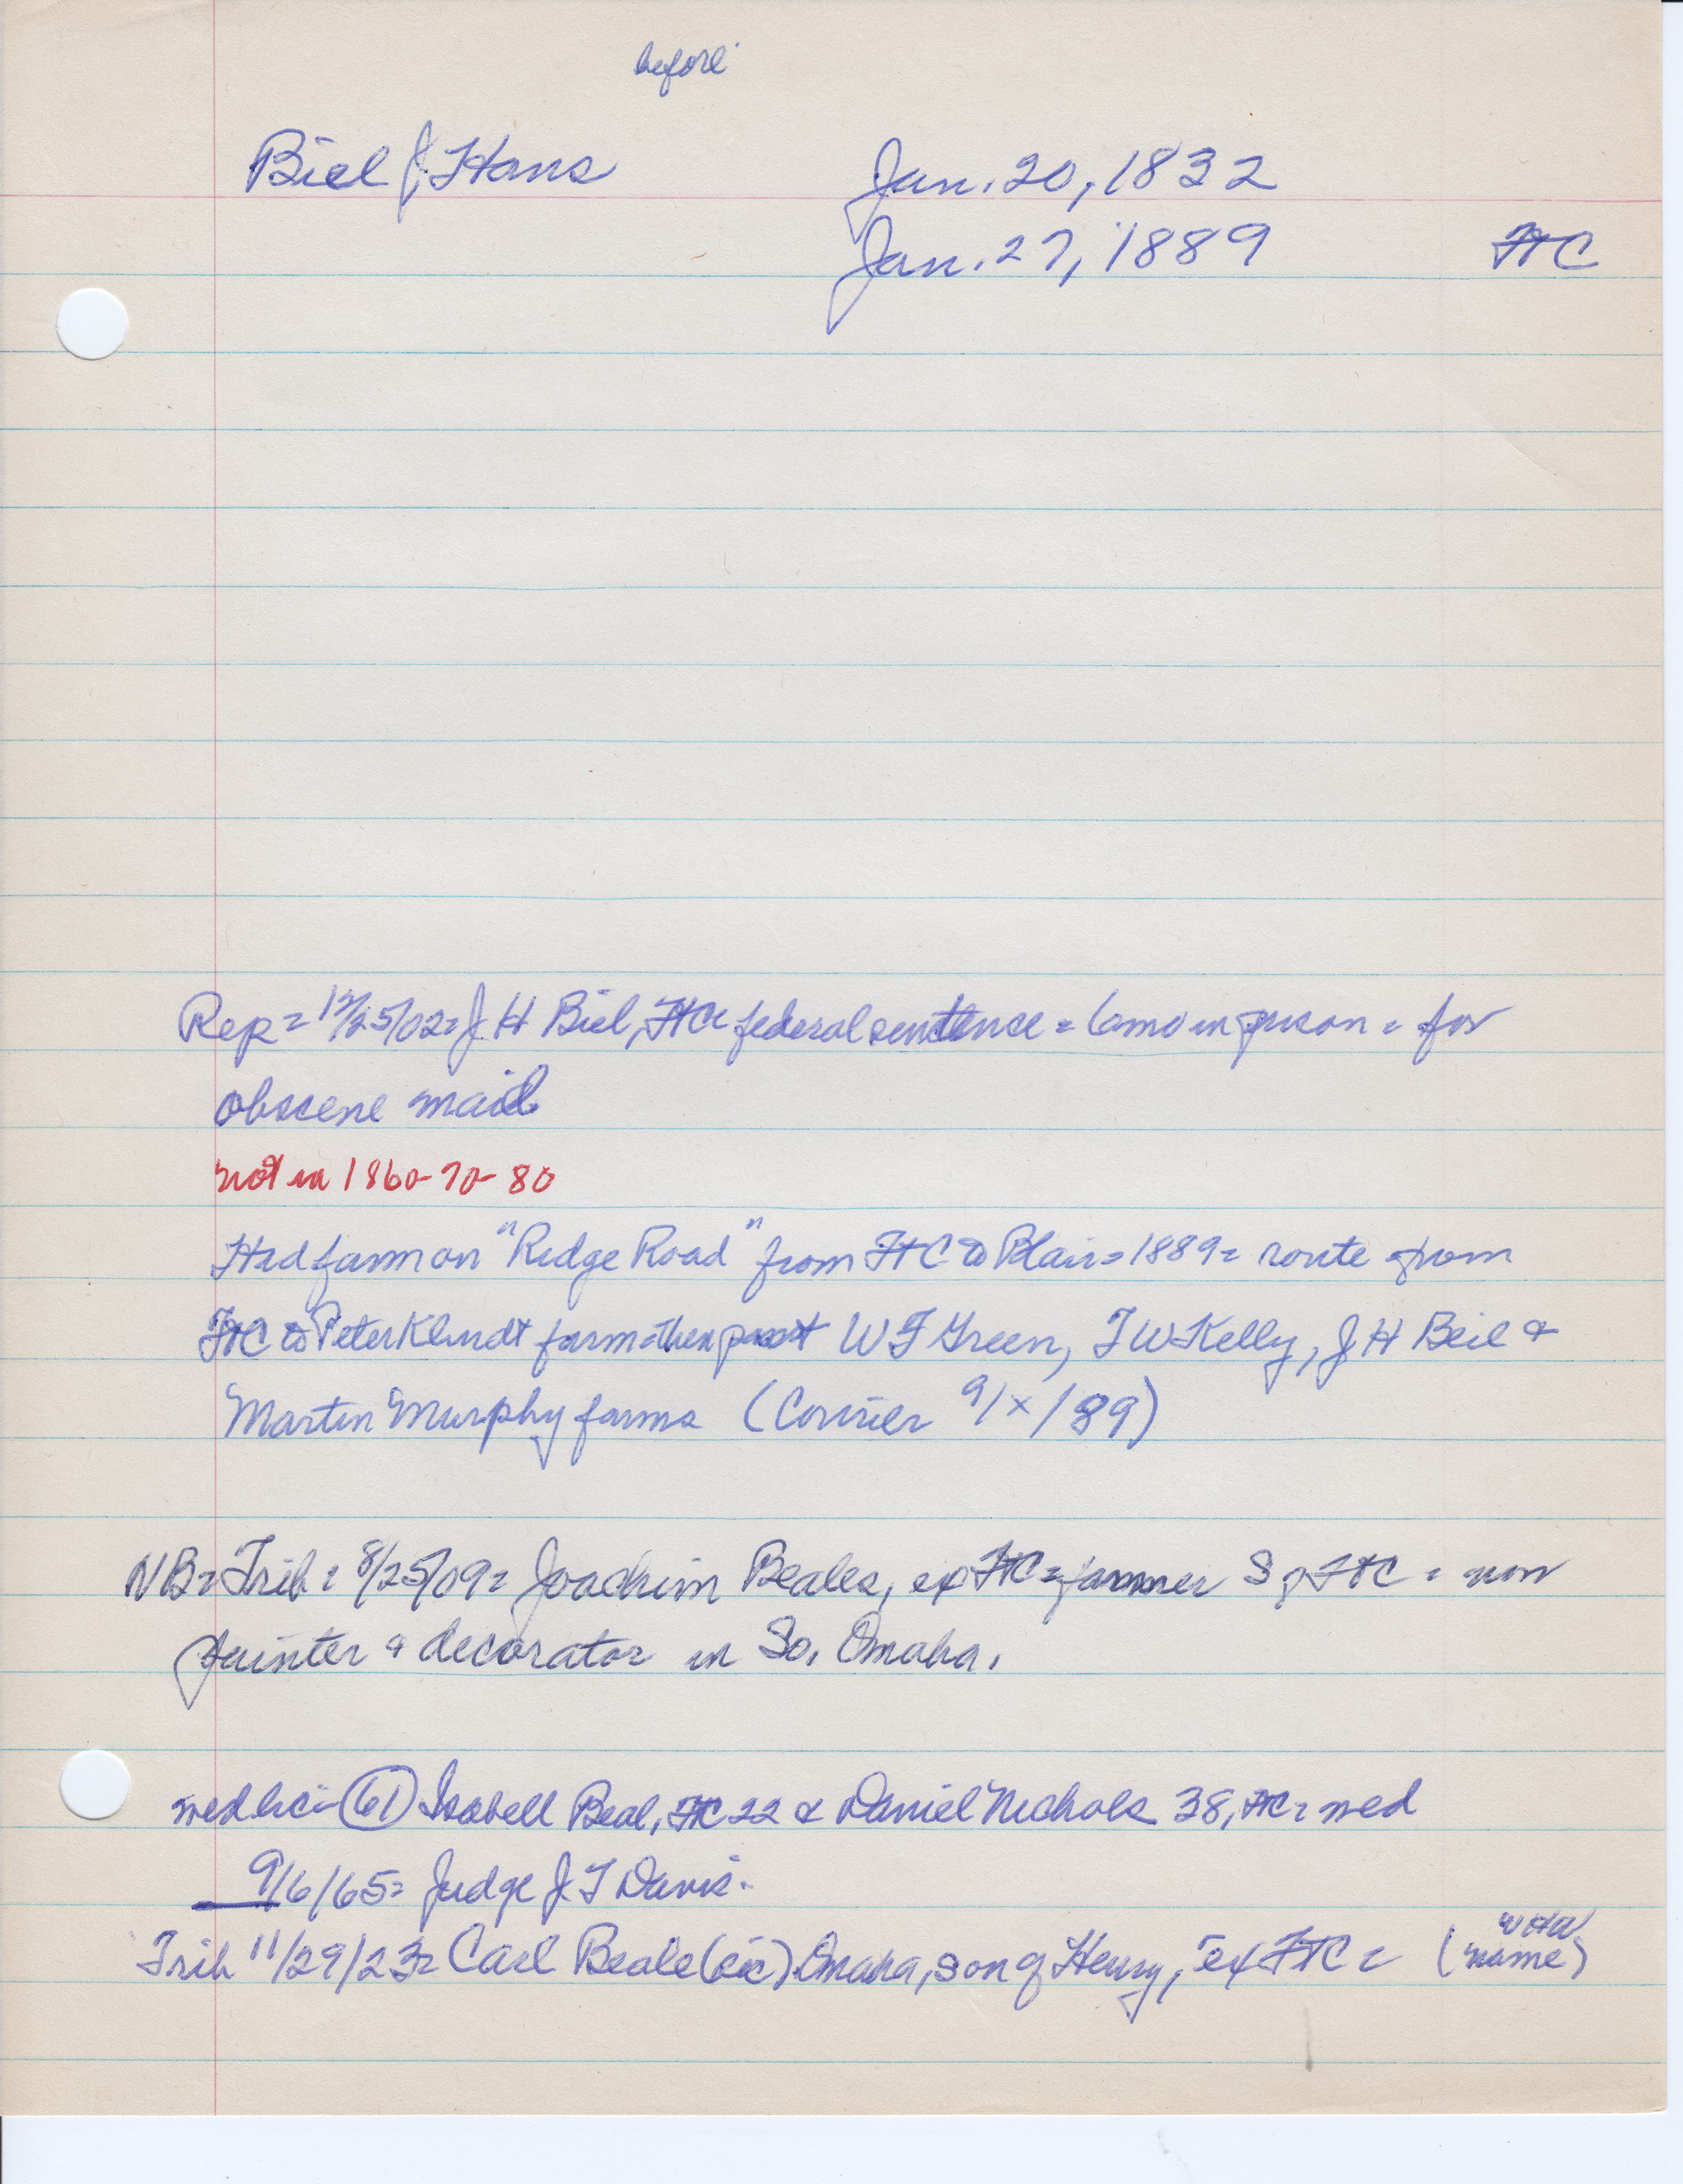 before
Biel J. Hans Jan. 20, 1832
Jan. 27, 1889 FtC
Rep = 12/25/02 = J H Biel, FtC = federal sentence = 6 mo in prison = for
obscene mail
not in 1860-70-80
Had farm on "Ridge Road" from FtC to Blair = 1889 = route from
FtC to Peter Klindt farm = then past W F Green, T W Kelly, J H Beil &
Martin Murphy farms (Courier 9/x/89)
NB = Trib = 8/25/09 = Joachim Beales, ex FtC = farmer S of FtC = now
painter & decorator in So. Omaha.
wed lic = 61 Isabell Beal, FtC 22 & Daniel Nichols 38, FtC = wed
9/6/65 = Judge J. T Davis.
Trib 11/29/23 = Carl Beale (sic) Omaha, son of Henry, ex FtC = (
name)